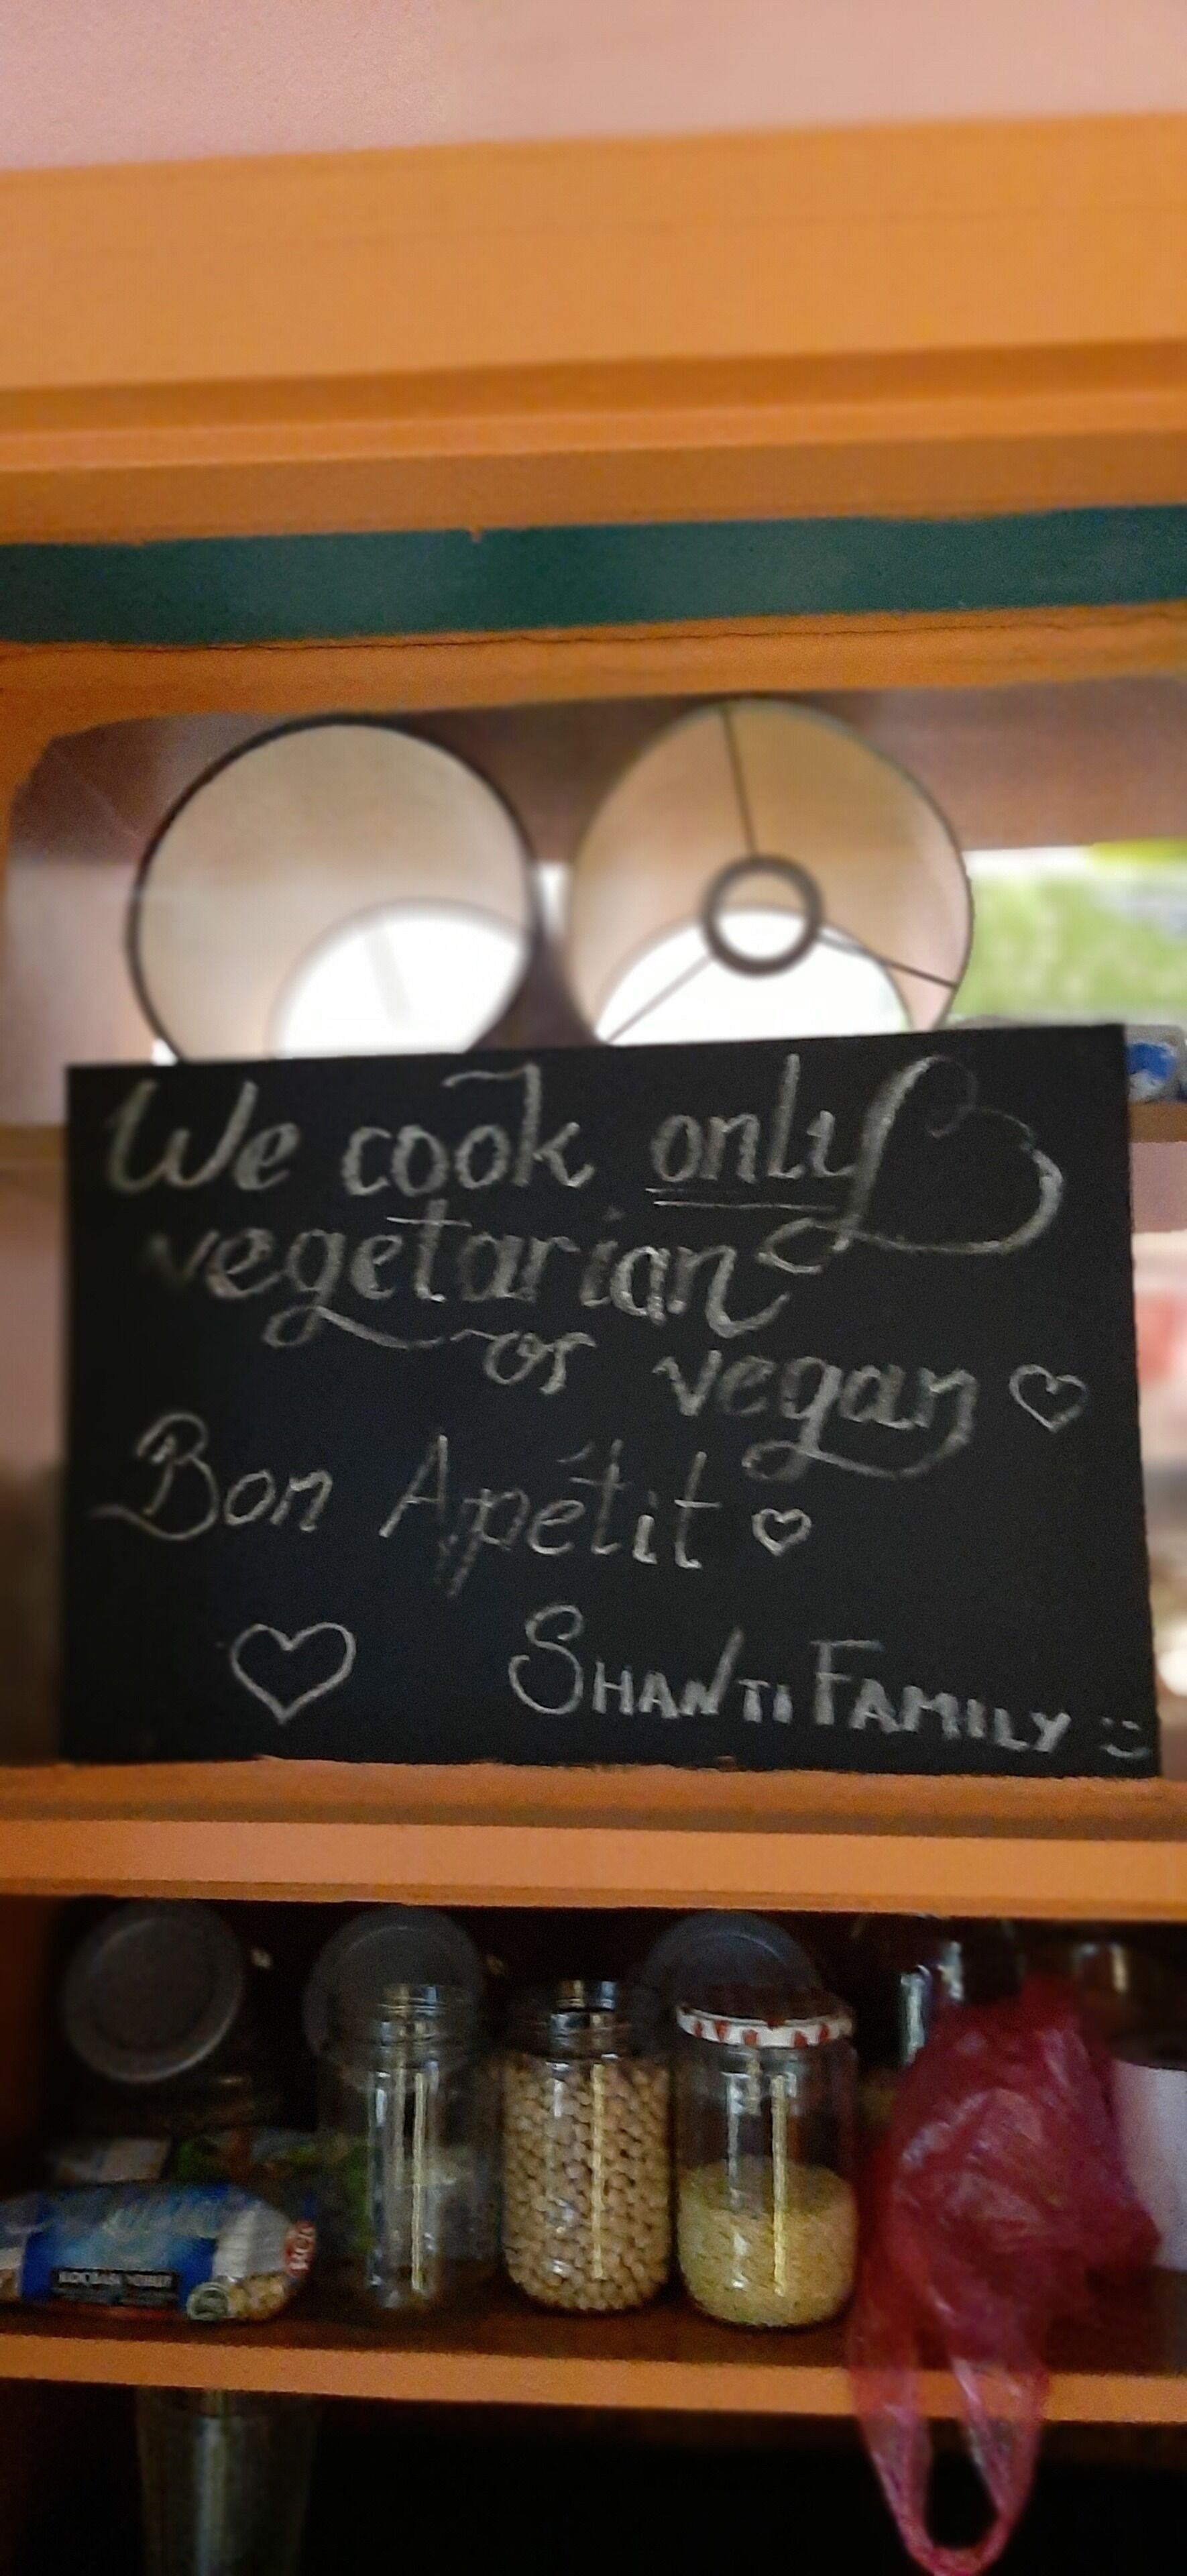 We cook only
vegetarian
or vegan ♡
Bon Apétit ♡
♡ SHANTI FAMILY :)